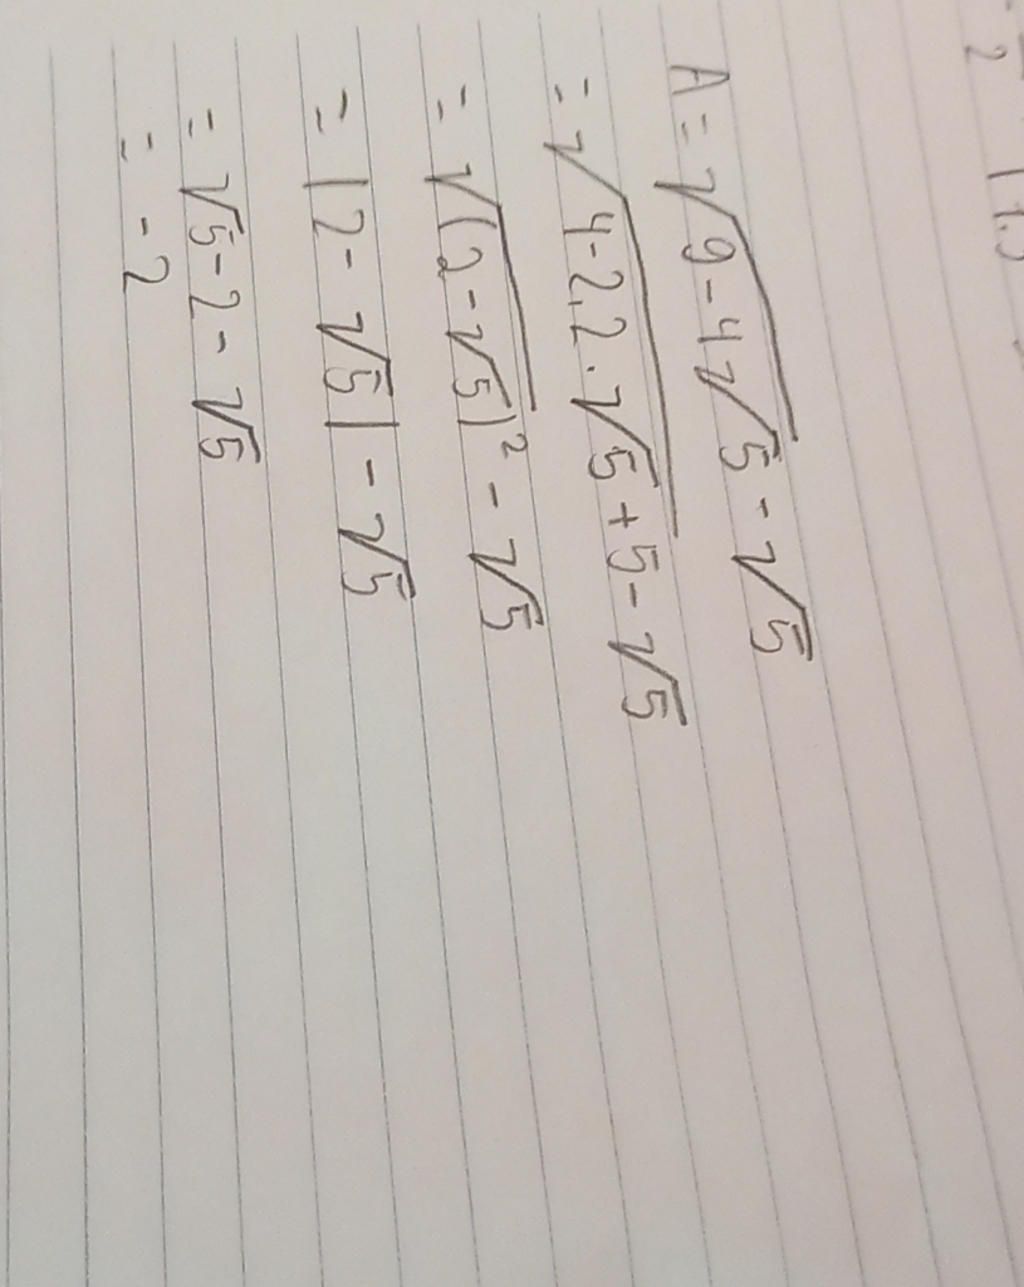 A = √9 - 4√5 - √5
= √4 - 2.2.√5 + 5 - √5
= √(2 - √5)² - √5
= |2 - √5| - √5
= √5 - 2 - √5
= -2